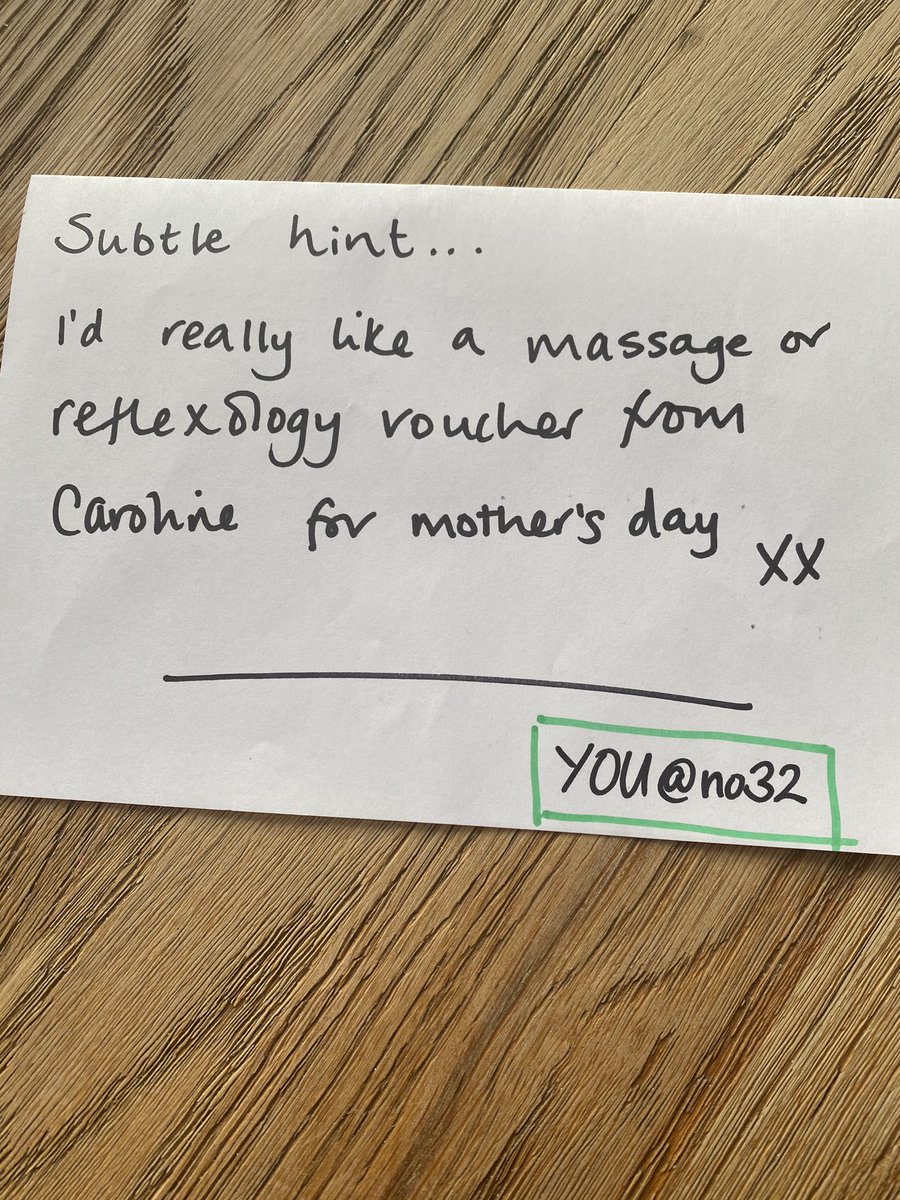 Subtle hint...
I'd really like a massage or
reflexology voucher from
Caroline for mother's day
xx
YOU@no32